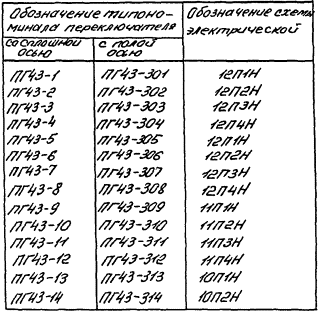 Обозначение типоно- Обозначение схемы
минала переключателя электрической
со сплошной с полой
осью осью
ПГ43-1 ПГ43-301 12П1Н
ПГ43-2 ПГ43-302 12П2Н
ПГ43-3 ПГ43-303 12П3Н
ПГ43-4 ПГ43-304 12П4Н
ПГ43-5 ПГ43-305 12П1Н
ПГ43-6 ПГ43-306 12П2Н
ПГ43-7 ПГ43-307 12П3Н
ПГ43-8 ПГ43-308 12П4Н
ПГ43-9 ПГ43-309 11П1Н
ПГ43-10 ПГ43-310 11П2Н
ПГ43-11 ПГ43-311 11П3Н
ПГ43-12 ПГ43-312 11П4Н
ПГ43-13 ПГ43-313 10П1Н
ПГ43-14 ПГ43-314 10П2Н